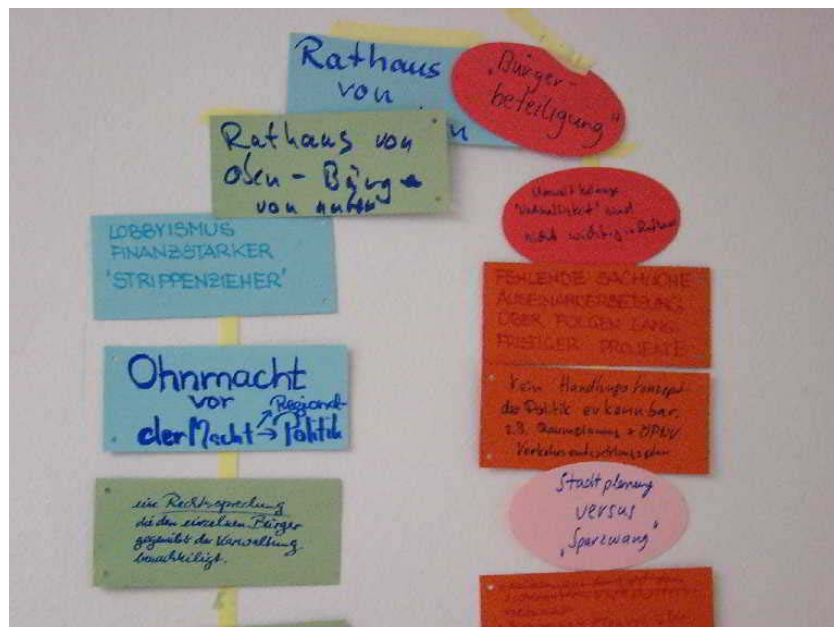 Rathaus
von
„Bürger-
beteiligung"
Rathaus von
oben - Bürg
von unten
LOBBYISMUS
FINANZSTARKER
'STRIPPENZIEHER'
Ohnmacht
vor
der Macht → Politik
Regional-
eine Rechtsprechung
die den einzelnen Bürger
gegenüber der Verwaltung
benachteiligt.
Umweltbelange
sind
nicht wichtig im Rathaus
FEHLENDE SACHLICHE
AUSEINANDERSETZUNG
ÜBER FOLGEN LANG-
FRISTIGER PROJEKTE
Kein Handlungskonzept
der Politik erkennbar.
z.B. Raumplanung + ÖPNV
Verkehrsentwicklungsplan
Stadtplanung
versus
„Sparzwang"